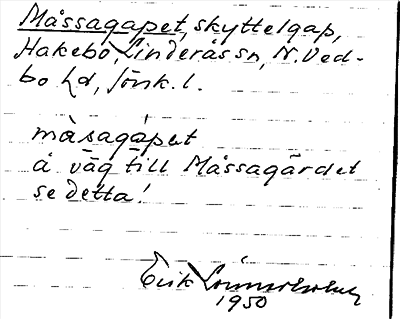 Måssagapet, skyttelgap,
Hakebo, Linderås sn, N. Ved-
bo hd, Jönk. l.
måsagápet
å väg till Måssagärdet
se detta!
Erik
1950